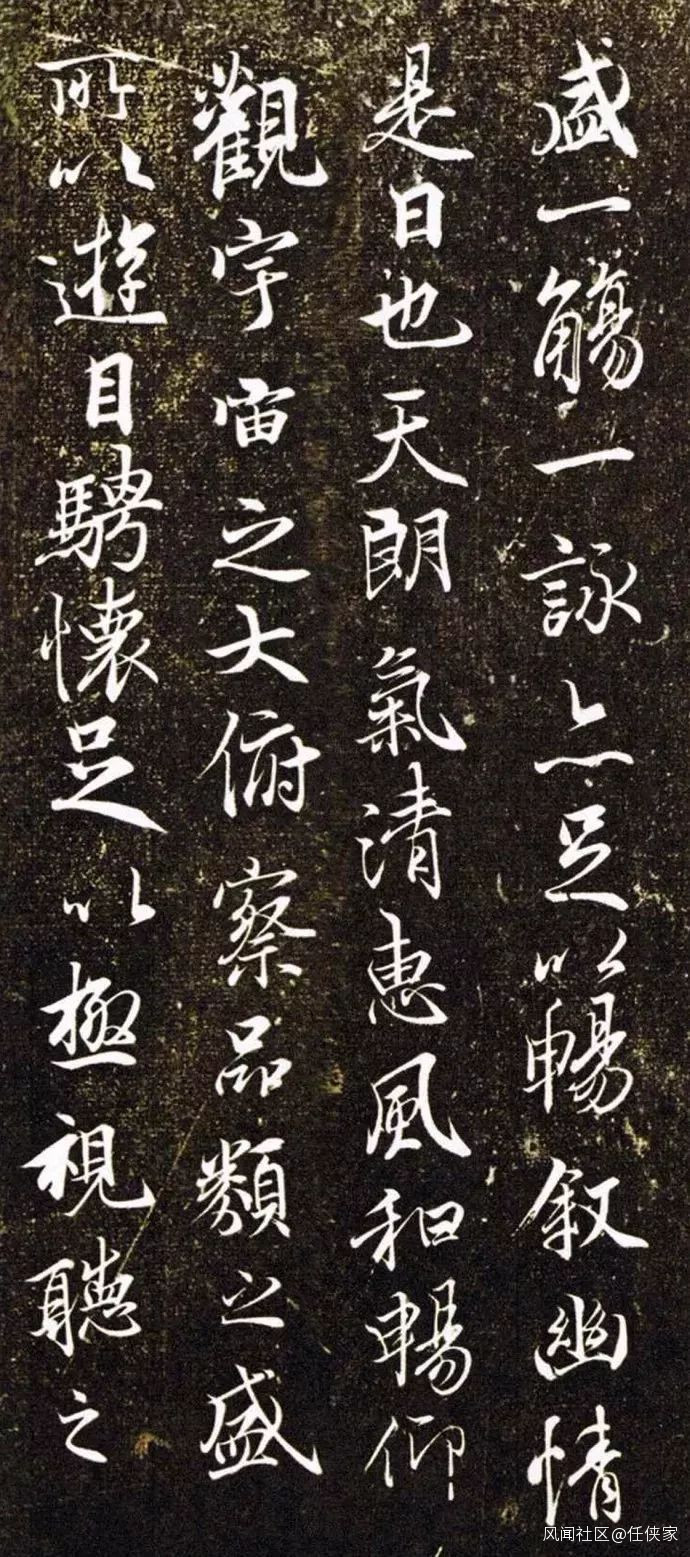 盛一觴一詠亦足以暢敘幽情
是日也天朗氣清惠風和暢仰
觀宇宙之大俯察品類之盛
所以遊目騁懷足以極視聽之
风闻社区@任侠家